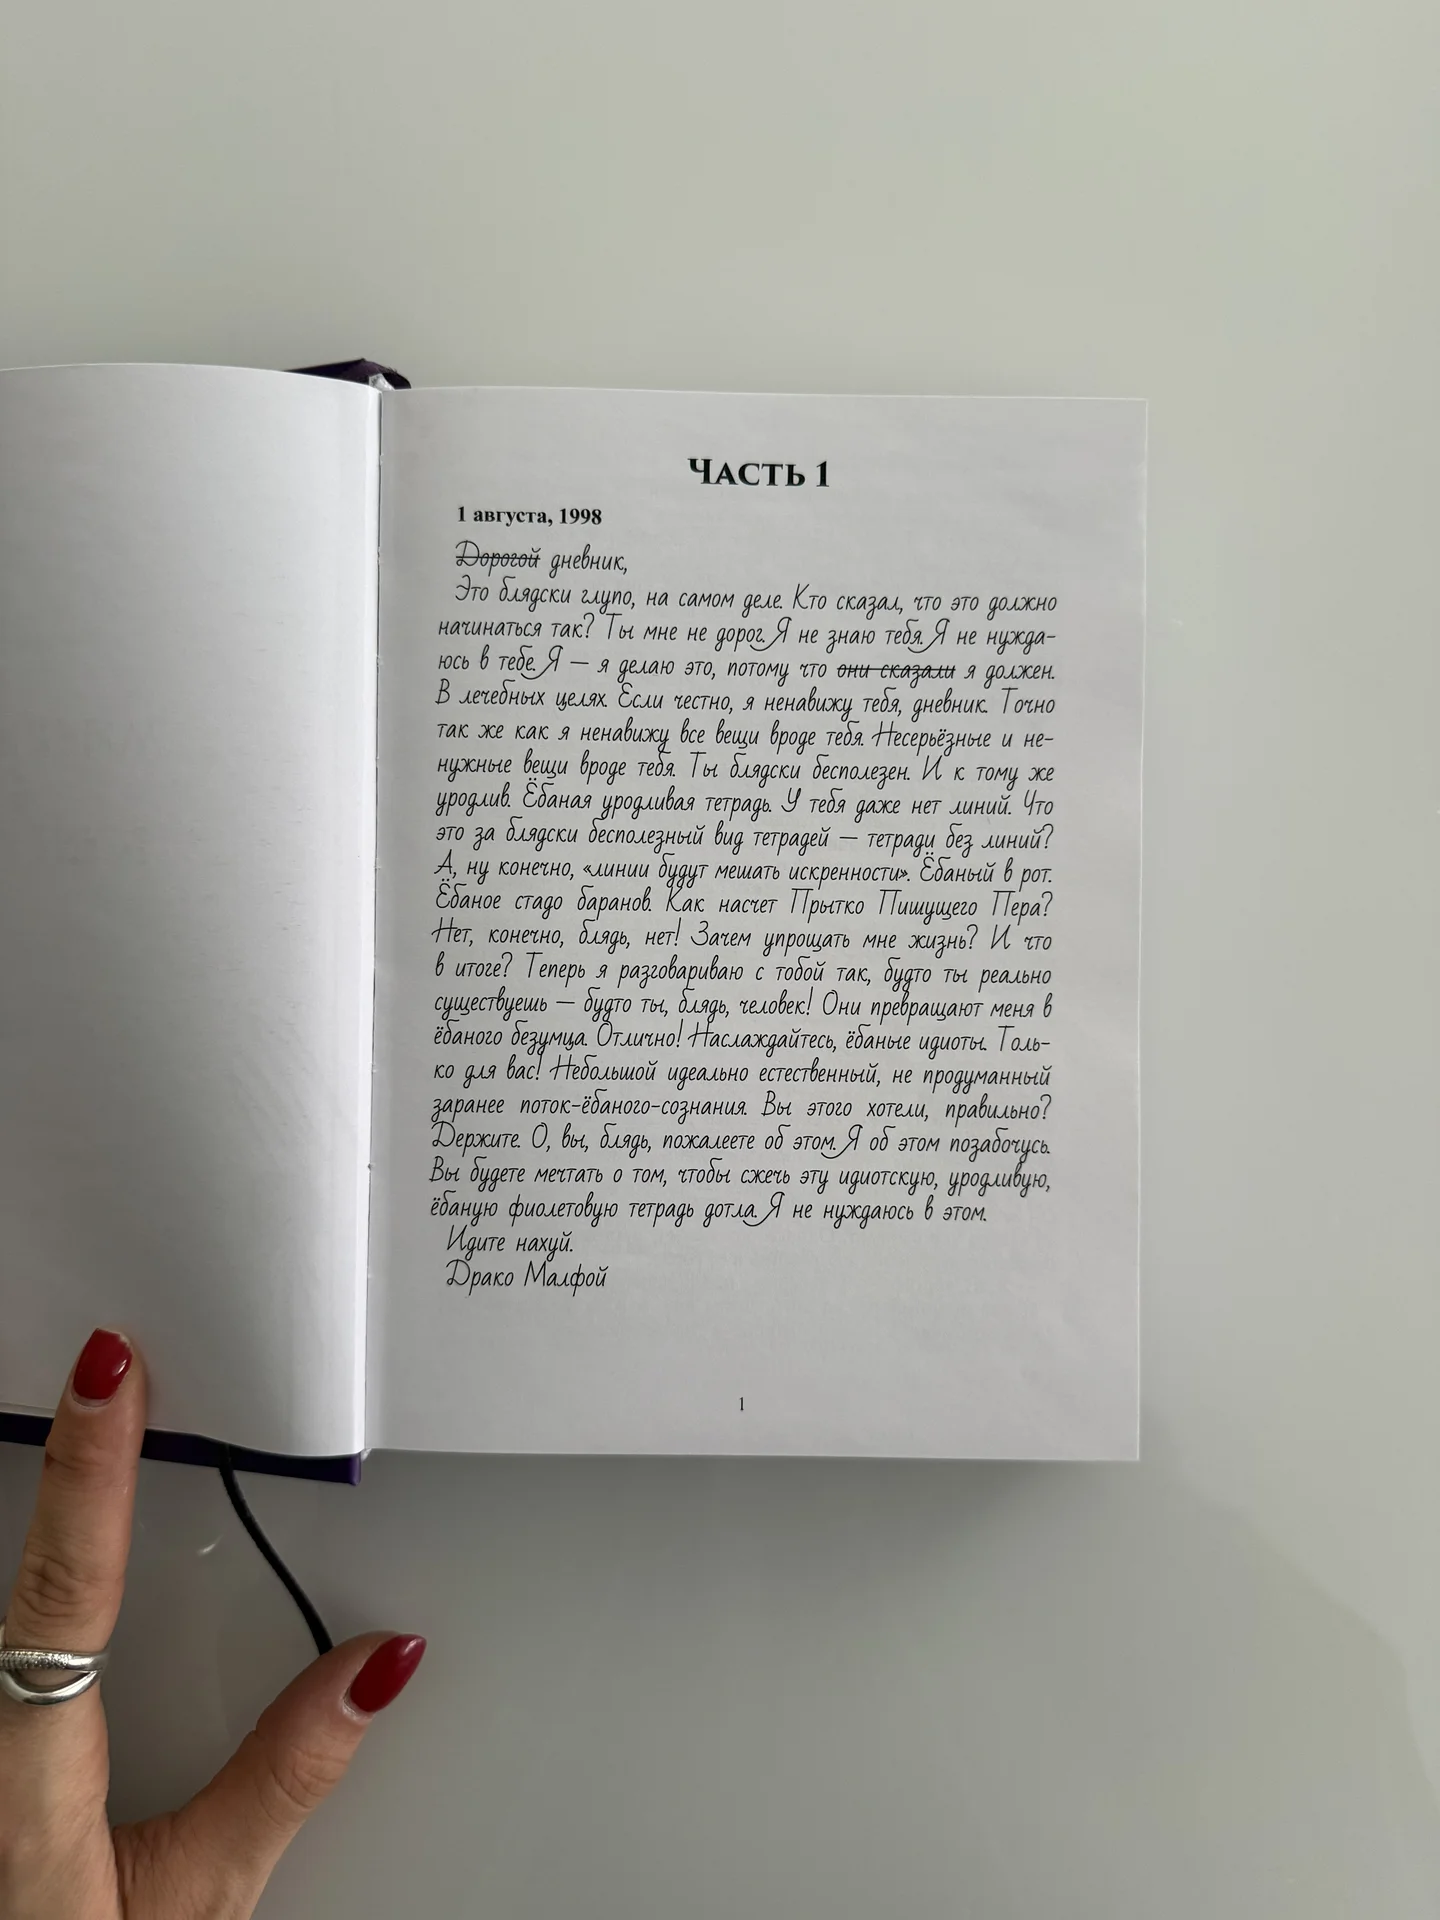 Часть 1
1 августа, 1998
Дорогой дневник,
Это блядски глупо, на самом деле. Кто сказал, что это должно
начинаться так? Ты мне не дорог. Я не знаю тебя. Я не нужда-
юсь в тебе. Я — я делаю это, потому что они сказали я должен.
В лечебных целях. Если честно, я ненавижу тебя, дневник. Точно
так же как я ненавижу все вещи вроде тебя. Несерьёзные и не-
нужные вещи вроде тебя. Ты блядски бесполезен. И к тому же
уродлив. Ёбаная уродливая тетрадь. У тебя даже нет линий. Что
это за блядски бесполезный вид тетрадей — тетради без линий?
А, ну конечно, «линии будут мешать искренности». Ёбаный в рот.
Ёбаное стадо баранов. Как насчет Прытко Пишущего Пера?
Нет, конечно, блядь, нет! Зачем упрощать мне жизнь? И что
в итоге? Теперь я разговариваю с тобой так, будто ты реально
существуешь — будто ты, блядь, человек! Они превращают меня в
ёбаного безумца. Отлично! Наслаждайтесь, ёбаные идиоты. Толь-
ко для вас! Небольшой идеально естественный, не продуманный
заранее поток-ёбаного-сознания. Вы этого хотели, правильно?
Держите. О, вы, блядь, пожалеете об этом. Я об этом позабочусь.
Вы будете мечтать о том, чтобы сжечь эту идиотскую, уродливую,
ёбаную фиолетовую тетрадь дотла. Я не нуждаюсь в этом.
Идите нахуй.
Драко Малфой
1